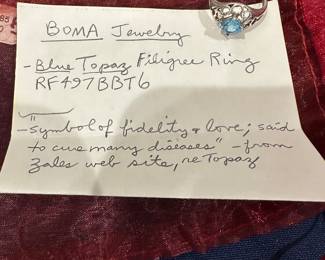 BOMA Jewelry
- Blue Topaz Filigree Ring
RF497BBT6
- "symbol of fidelity & love; said
to cure many diseases" - from
Zales web site, re Topaz
85